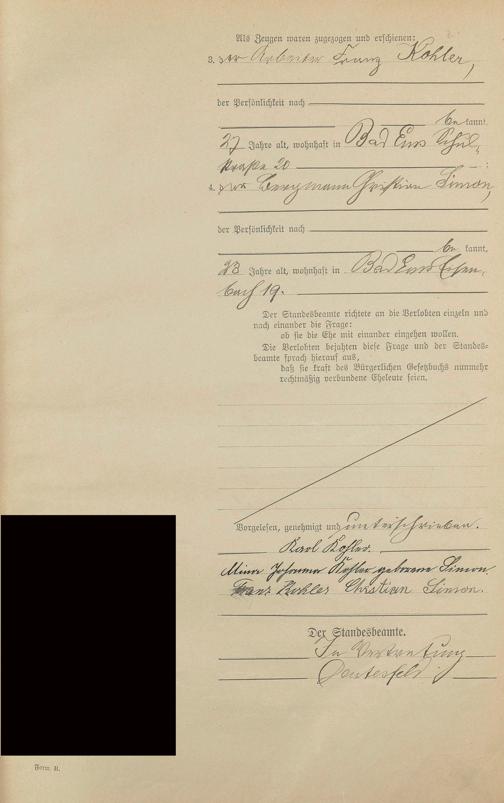 Als Zeugen waren zugezogen und erschienen:
3. der Arbeiter Franz Kohler,
der Persönlichkeit nach
be kannt,
27 Jahre alt, wohnhaft in Bad Ems Schul-
straße 20
4. der Bergmann Christian Simon,
der Persönlichkeit nach
be kannt,
23 Jahre alt, wohnhaft in Bad Ems Eisen-
bach 19.
Der Standesbeamte richtete an die Verlobten einzeln und
nach einander die Frage:
ob sie die Ehe mit einander eingehen wollen.
Die Verlobten bejahten diese Frage und der Standes-
beamte sprach hierauf aus,
daß sie kraft des Bürgerlichen Gesetzbuchs nunmehr
rechtmäßig verbundene Eheleute seien.
Vorgelesen, genehmigt und unterschrieben.
Karl Kohler.
Johanna Kohler geborene Simon.
Franz Kohler Christian Simon.
Der Standesbeamte.
In Vertretung
Form. B.